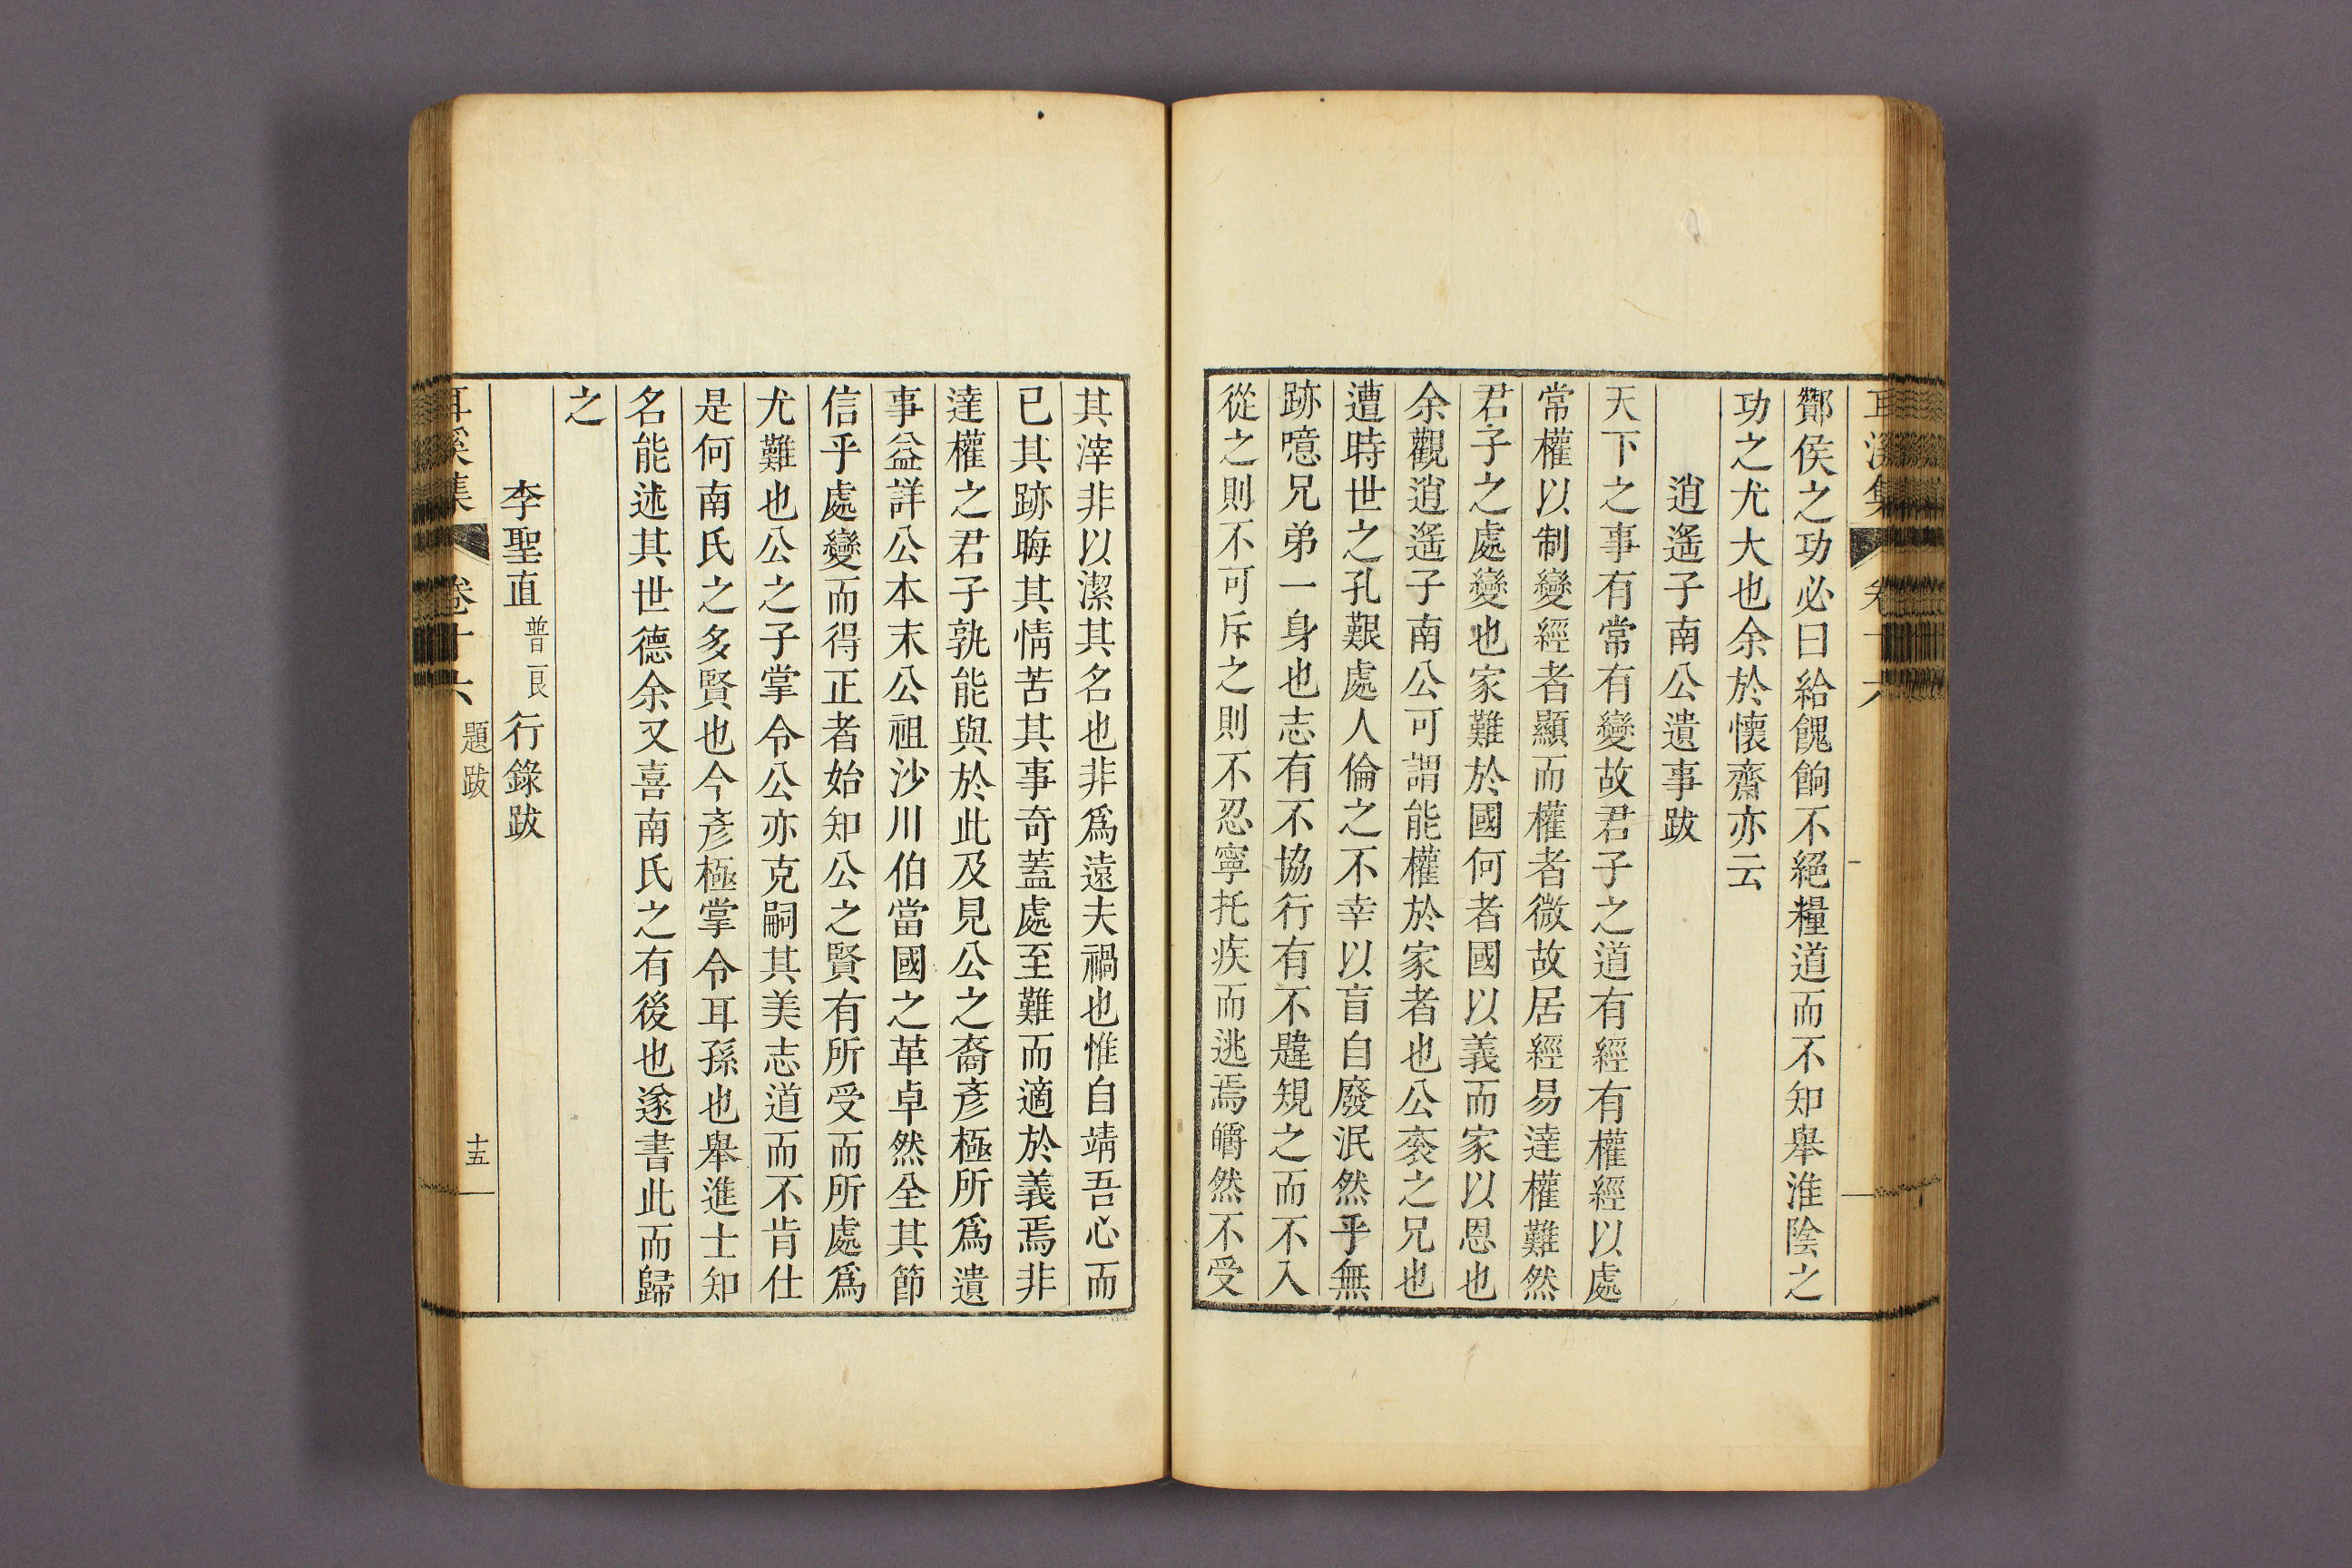 耳溪集 卷十六
酇侯之功必曰給餽餉不絕糧道而不知舉淮陰之
功之尤大也余於懷齋亦云
逍遙子南公遺事跋
天下之事有常有變故君子之道有經有權經以處
常權以制變經者顯而權者微故居經易達權難然
君子之處變也家難於國何者國以義而家以恩也
余觀逍遙子南公可謂能權於家者也公袞之兄也
遭時世之孔艱處人倫之不幸以盲自廢泯然乎無
跡噫兄弟一身也志有不協行有不韙規之而不入
從之則不可斥之則不忍寧托疾而逃焉皭然不受
其滓非以潔其名也非爲遠夫禍也惟自靖吾心而
已其跡晦其情苦其事奇蓋處至難而適於義焉非
達權之君子孰能與於此及見公之裔彥極所爲遺
事益詳公本末公祖沙川伯當國之革卓然全其節
信乎處變而得正者始知公之賢有所受而所處爲
尤難也公之子掌令公亦克嗣其美志道而不肯仕
是何南氏之多賢也今彥極掌令耳孫也舉進士知
名能述其世德余又喜南氏之有後也遂書此而歸
之
李聖直普艮行錄跋
耳溪集 卷十六 題跋 十五